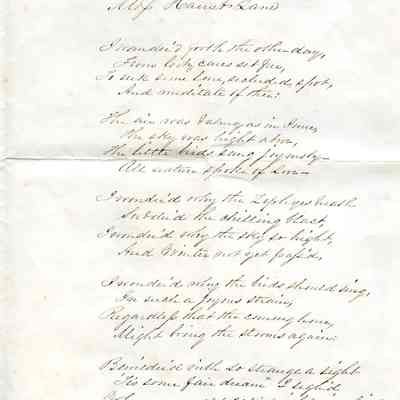 Miss Harriet Lane
I wander'd forth the other day,
From City cares set free,
To seek some lone, secluded spot,
And meditate of thee:
The air was balmy as in June,
The sky was bright above,
The little birds sang joyously—
All nature spoke of Love—
I wonder'd why the Zephyrs breath
Subdu'd the chilling blast
I wonder'd why the sky so bright,
And Winter not yet pass'd,
I wonder'd why the birds should sing,
In such a joyous strain,
Regardless that the coming hour,
Might bring the storms again:
Bewilder'd with so strange a sight
"Tis some fair dream" I sigh'd